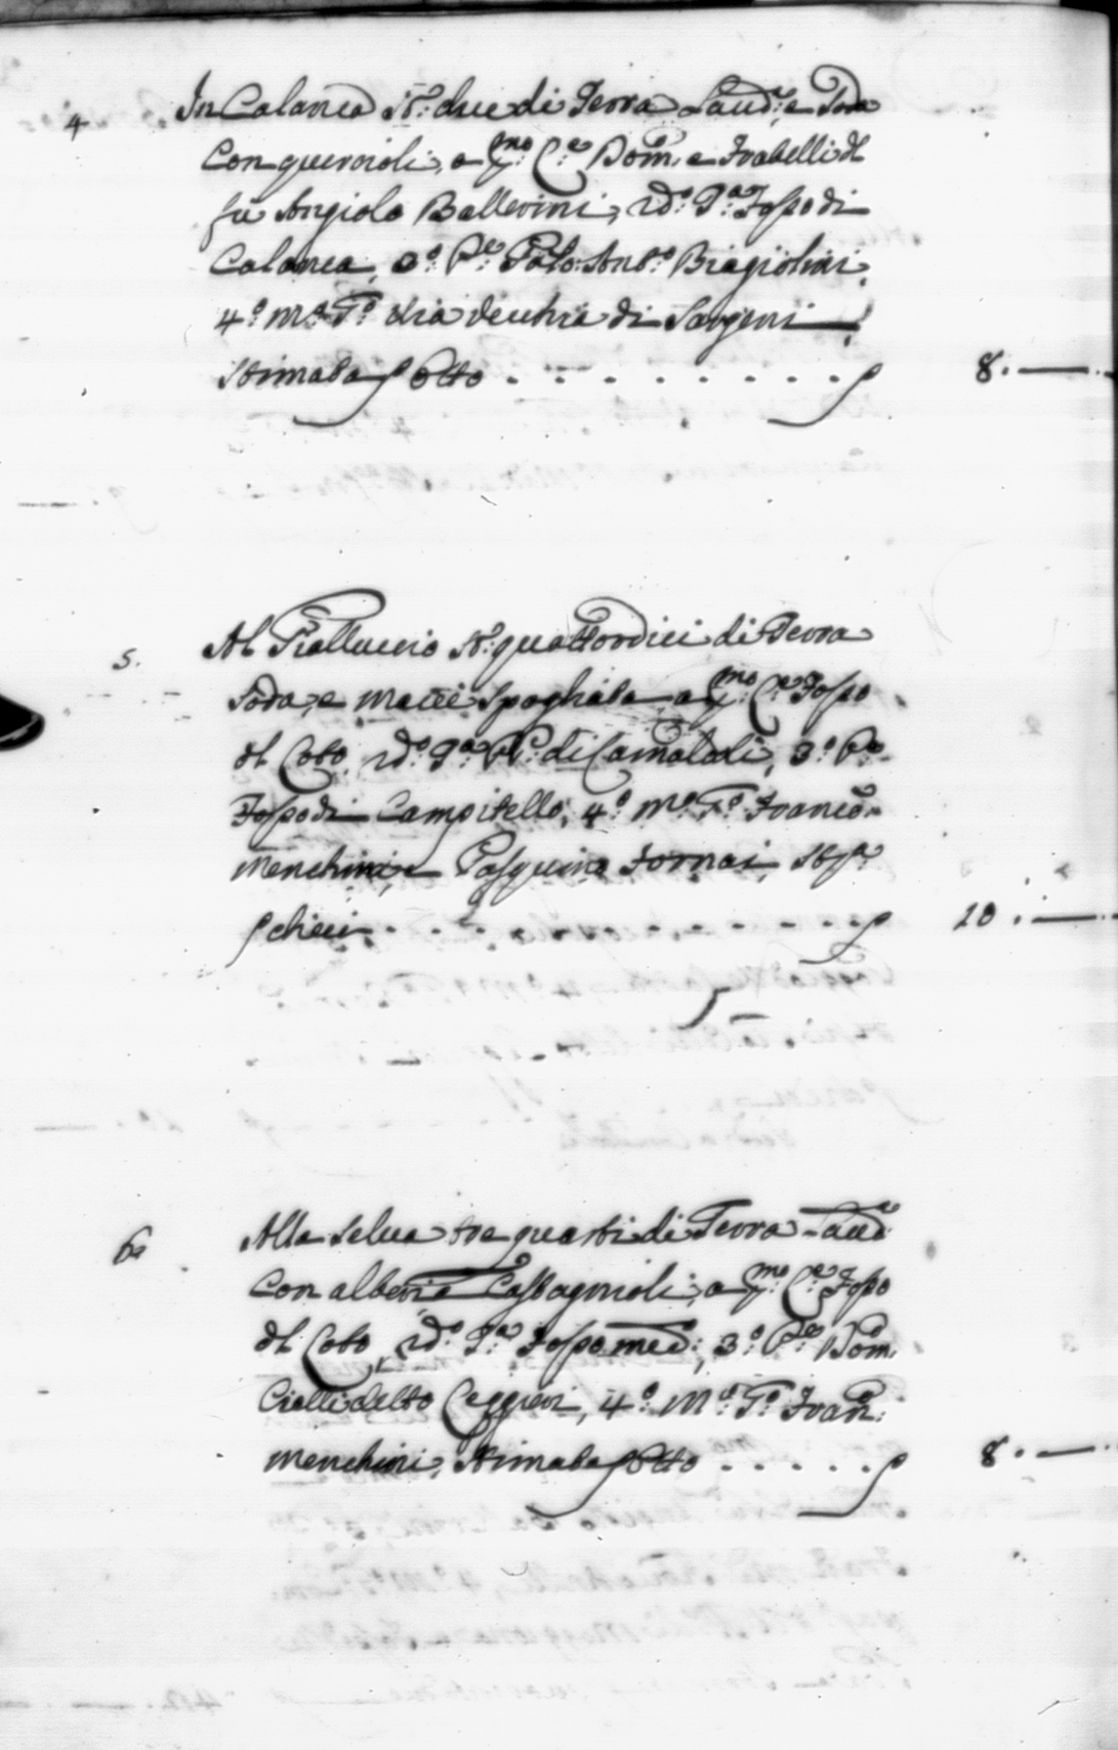 4 In Calanca St: due di Terra Laud:ª e Soda
Con quercioli, a p:mo C:e Dom:co e Fratelli dl
fu Angiolo Ballerini, 2do: P:ª Fosso di
Calanca, 3º: P:e Polo Ant:º Biagiolini,
4º: Mº: T:º Via Vecchia di Sargeni
Stimata p otto . . . . . . . . . p 8. —
5. Al Pialluccio St: quattordici di Terra
Soda, e Macc: Spogliata, a p:mo C:e Fosso
dl Coto, 2do: P:ª PP: di Camaldoli, 3º: P:e
Fosso di Campitello, 4º: Mº: T:º Franc:º
Menchini, e Pasquino Fornai, St:ª
p dieci . . . . . . . . . . . p 10. —
6. Alla Selva tre quarti di Terra Laud:
Con alberi e Castagnioli, a p:mo C:e Fosso
dl Coto, 2do: P:ª Fosso med:, 3º: P:e Dom:co
Cielli detto, 4º: Mº: T:º Fran:
Menchini, Stimata p otto . . . . . p 8. —